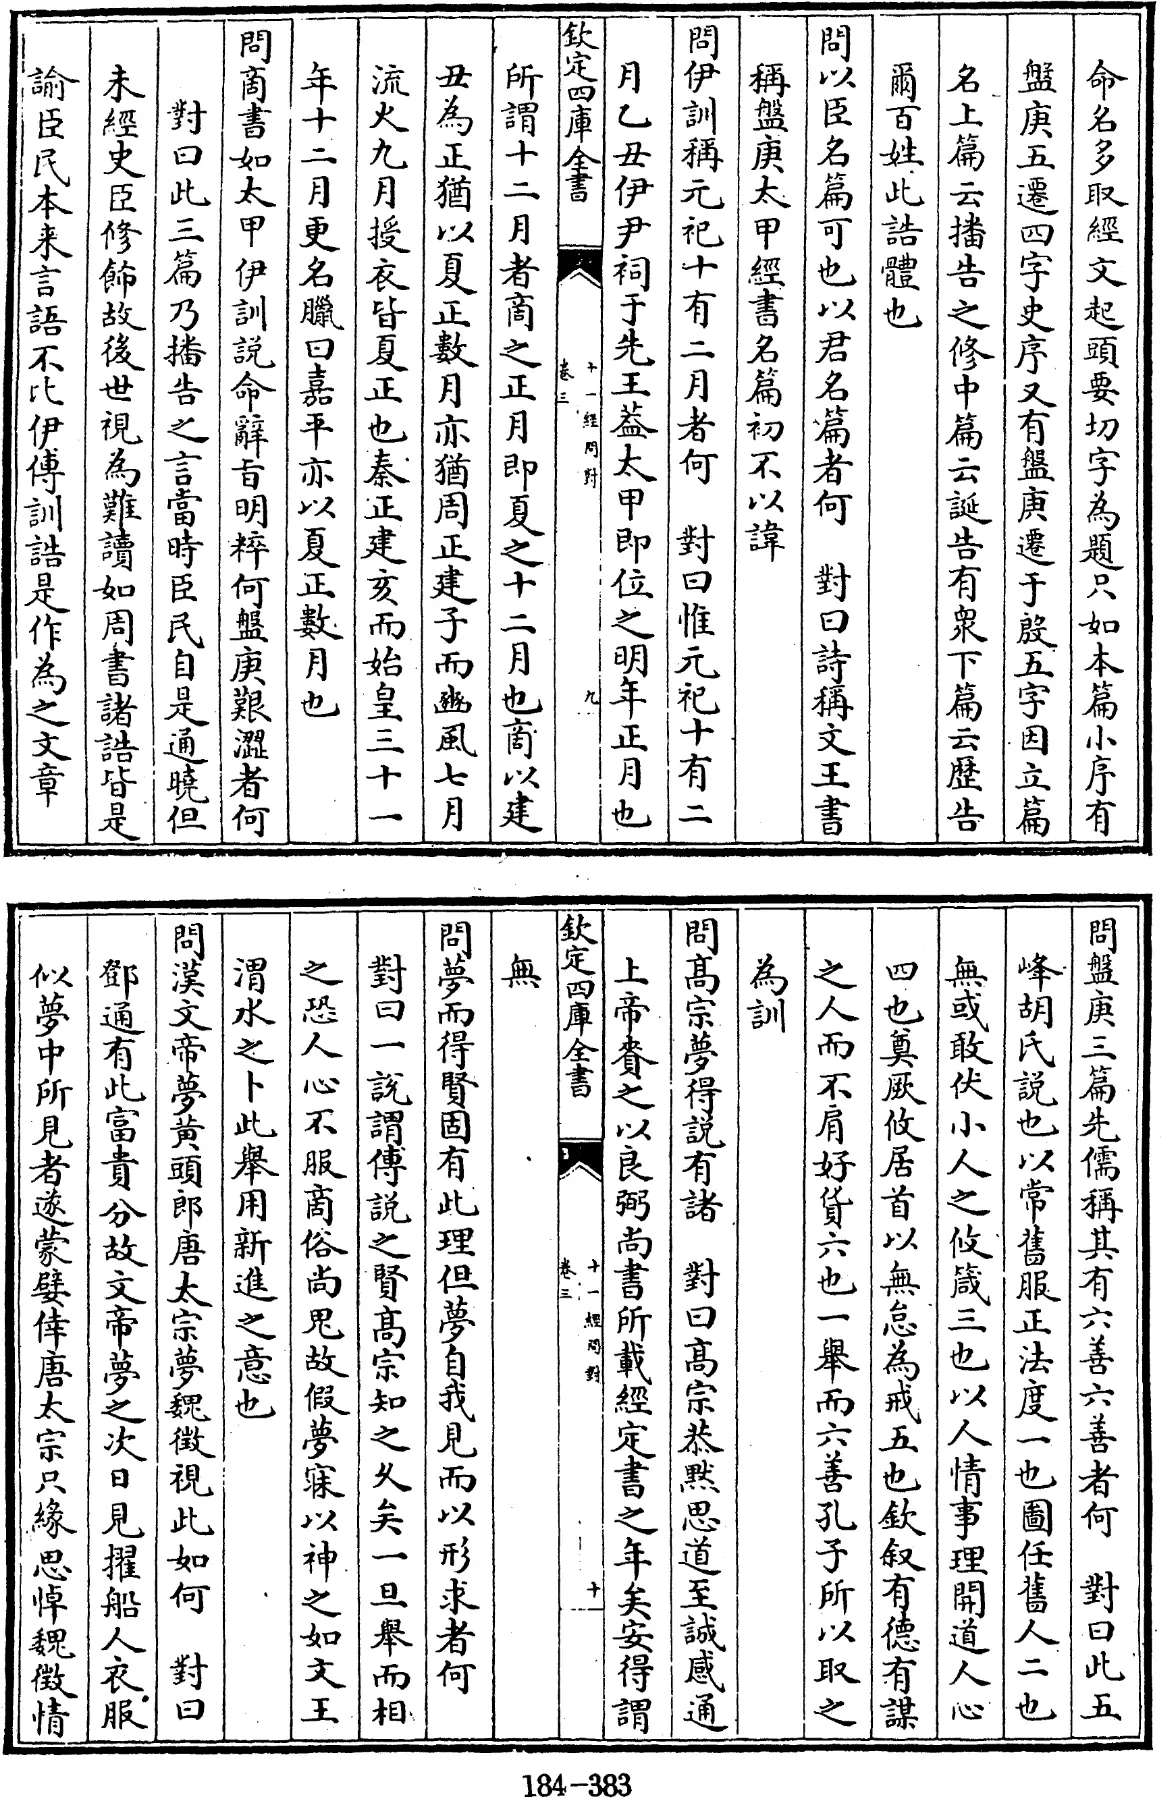 命名多取經文起頭要切字為題只如本篇小序有
盤庚五遷四字史序又有盤庚遷于殷五字因立篇
名上篇云播告之修中篇云誕告有衆下篇云歷告
爾百姓此誥體也
問以臣名篇可也以君名篇者何　對曰詩稱文王書
稱盤庚太甲經書名篇初不以諱
問伊訓稱元祀十有二月者何　對曰惟元祀十有二
月乙丑伊尹祠于先王蓋太甲即位之明年正月也
欽定四庫全書　卷三　十一經問對　九
所謂十二月者商之正月即夏之十二月也商以建
丑為正猶以夏正數月亦猶周正建子而豳風七月
流火九月授衣皆夏正也秦正建亥而始皇三十一
年十二月更名臘曰嘉平亦以夏正數月也
問商書如太甲伊訓説命辭旨明粹何盤庚艱澀者何
對曰此三篇乃播告之言當時臣民自是通曉但
未經史臣修飾故後世視為難讀如周書諸誥皆是
諭臣民本来言語不比伊傅訓誥是作為之文章
問盤庚三篇先儒稱其有六善六善者何　對曰此五
峰胡氏説也以常舊服正法度一也圖任舊人二也
無或敢伏小人之攸箴三也以人情事理開道人心
四也奠厥攸居首以無怠為戒五也欽叙有德有謀
之人而不肩好貨六也一舉而六善孔子所以取之
為訓
問髙宗夢得説有諸　對曰髙宗恭黙思道至誠感通
上帝賚之以良弼尚書所載經定書之年矣安得謂
欽定四庫全書　卷三　十一經問對　十
無
問夢而得賢固有此理但夢自我見而以形求者何
對曰一説謂傅説之賢髙宗知之乆矣一旦舉而相
之恐人心不服商俗尚鬼故假夢寐以神之如文王
渭水之卜此舉用新進之意也
問漢文帝夢黄頭郎唐太宗夢魏徵視此如何　對曰
鄧通有此富貴分故文帝夢之次日見擢船人衣服
似夢中所見者遂蒙嬖倖唐太宗只緣思悼魏徵情
184-383